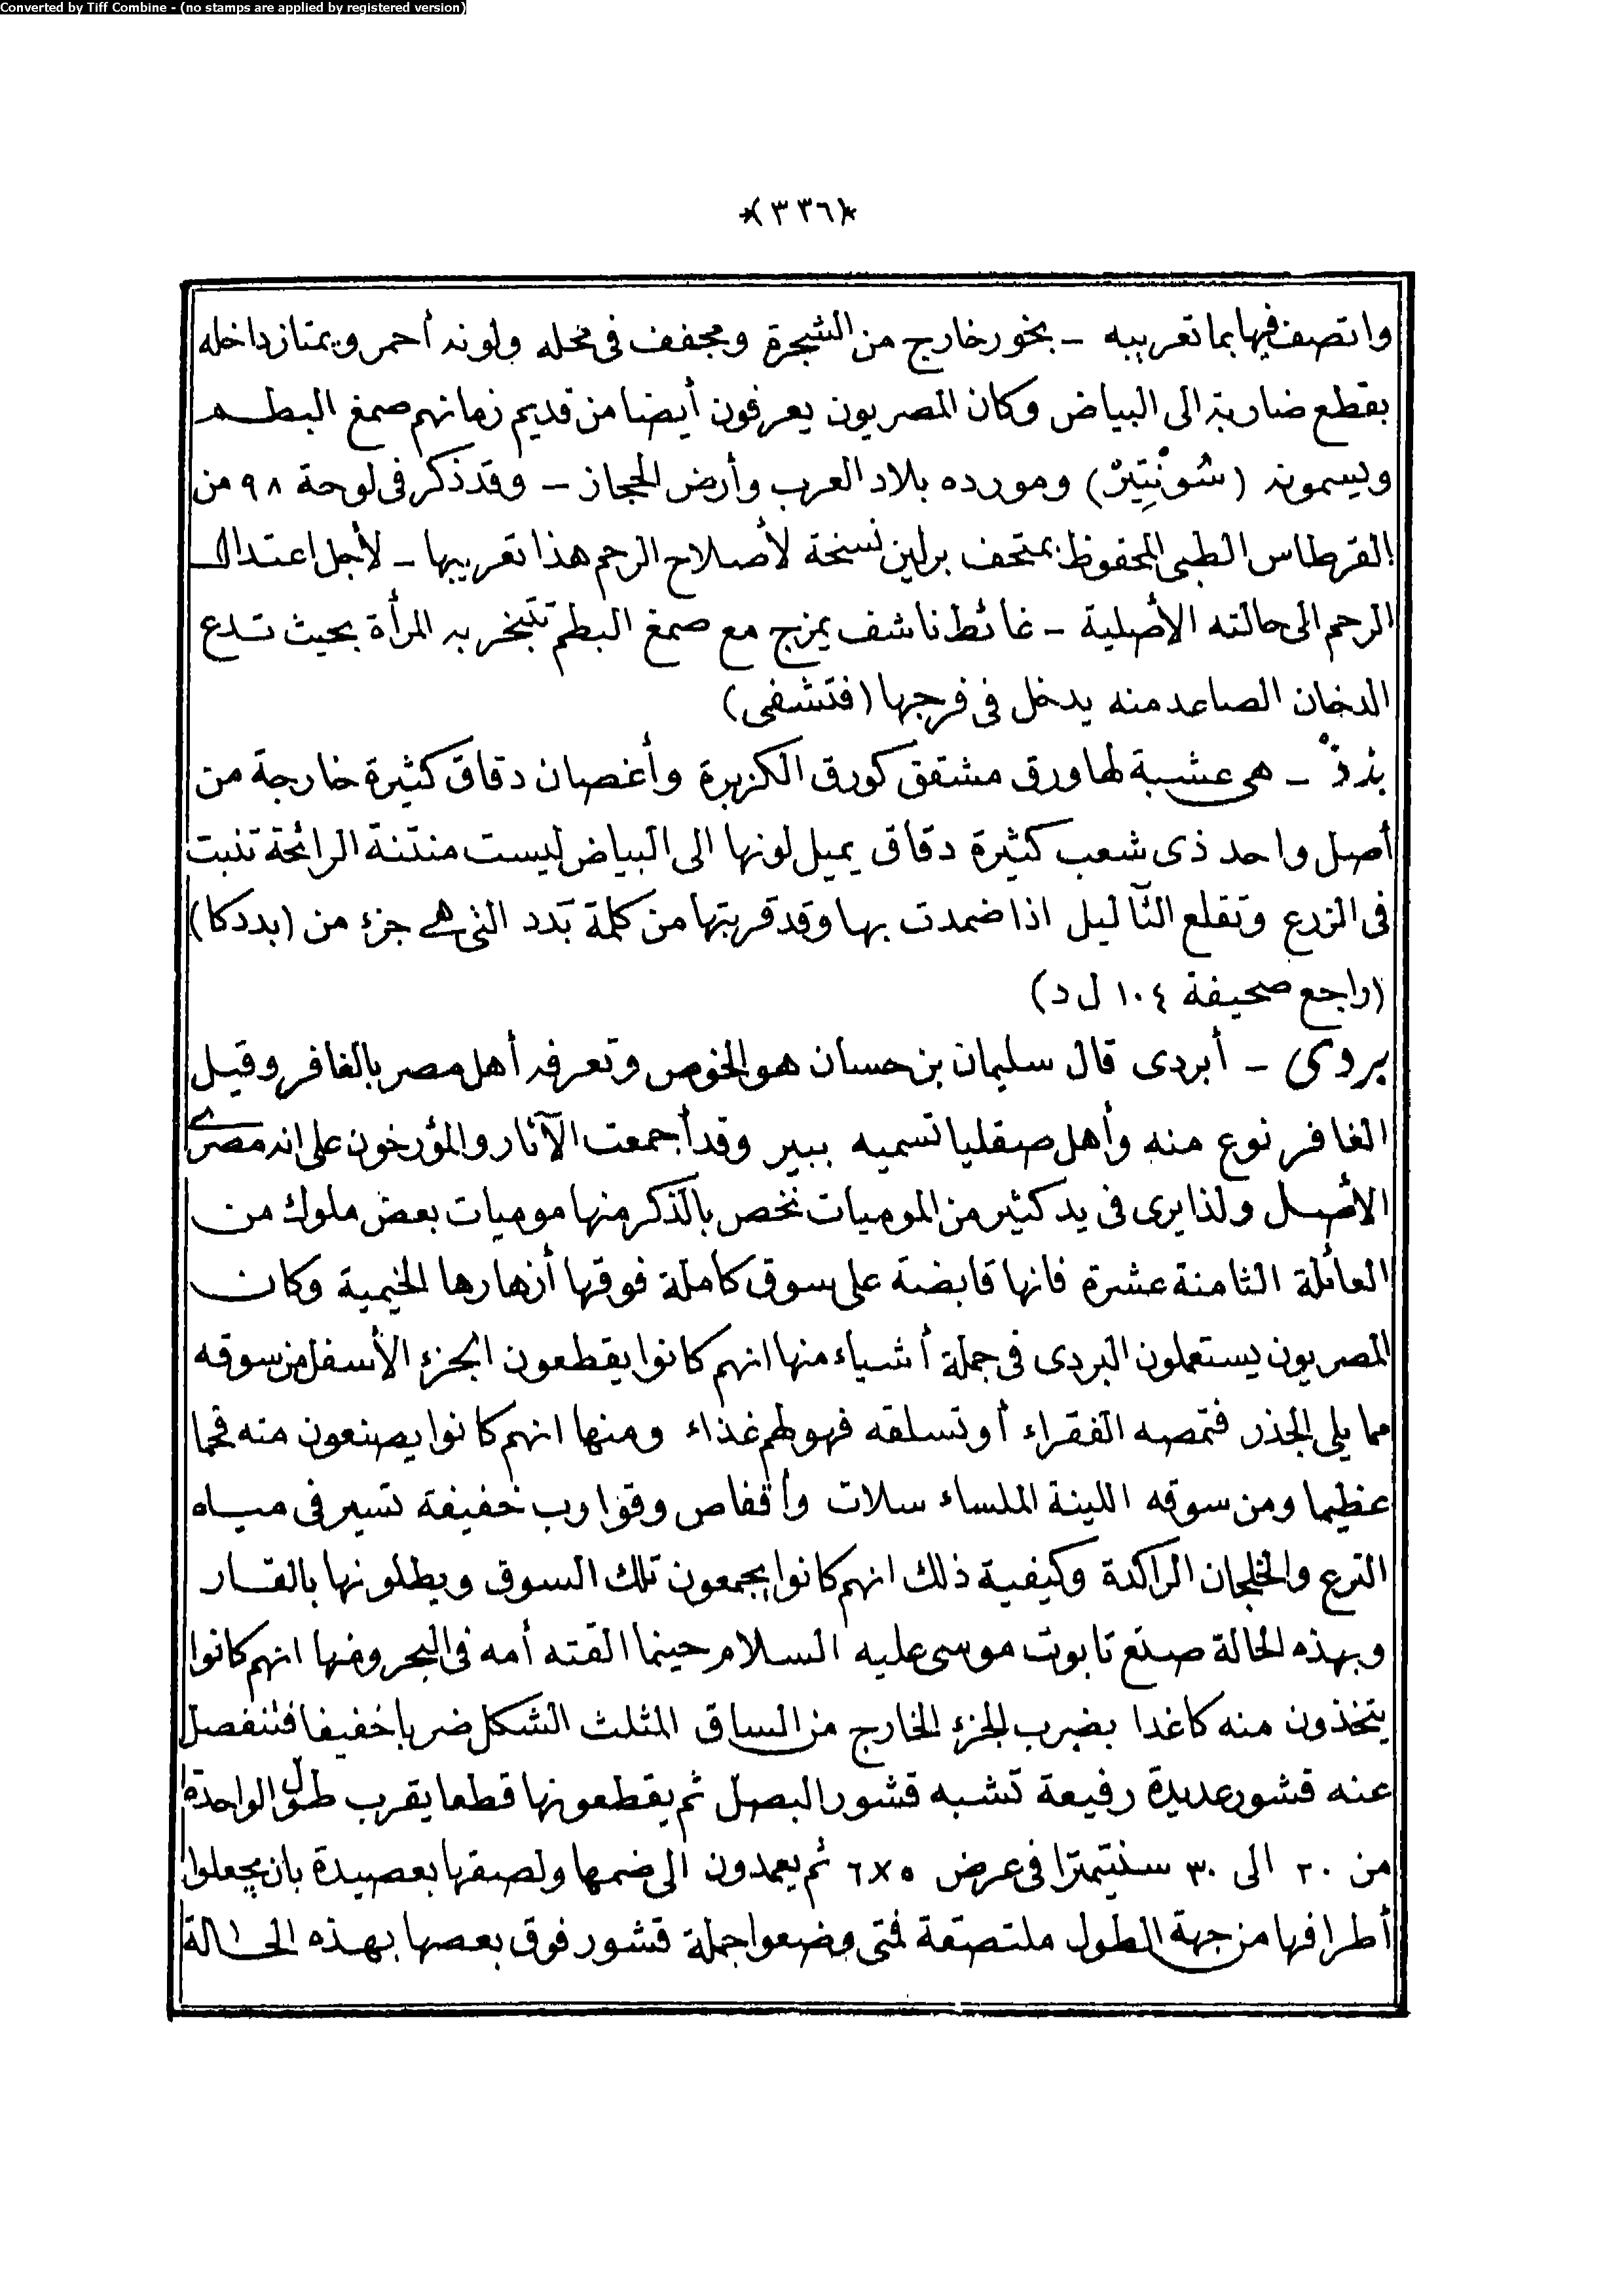 Converted by Tiff Combine - (no stamps are applied by registered version)
*(٣٣٦)*
واتصف فيها بما تعريبه ــ بخور خارج من الشجرة ومجفف فى محله ولونه أحمر ويمتاز داخله
بقطع ضاربة الى البياض وكان المصريون يعرفون أيضا من قديم زمانهم صمغ البطم
ويسمونه (سُونْتِيْرْ) ومورده بلاد العرب وأرض الحجاز ــ وقد ذكر فى لوحة ٩٨ من
القرطاس الطبى المحفوظ بمتحف برلين نسخة لأصلاح الرحم هذا تعريبها ــ لأجل اعتدال
الرحم الى حالته الأصلية ــ غائط ناشف يمزج مع صمغ البطم تتبخر به المرأة بحيث تدع
الدخان الصاعد منه يدخل فى فرجها (فتشفى)
بذذ ــ هى عشبة لها ورق مشقق كورق الكزبرة وأغصان دقاق كثيرة خارجة من
أصل واحد ذى شعب كثيرة دقاق يميل لونها الى البياض ليست منتنة الرائحة تنبت
فى الزرع وتقلع الثآليل اذا ضمدت بها وقد قربتها من كلمة بَدد التى هى جزء من (بددكا)
(راجع صحيفة ١٠٤ ل د)
بردى ــ أبردى قال سليمان بن حسان هو الخوص وتعرفه أهل مصر بالغافر وقيل
الغافر نوع منه وأهل صقليا تسميه ببير وقد أجمعت الآثار والمؤرخون على انه مصرى
الأصل ولذا يرى فى يد كثير من الموميات نخص بالذكر منها موميات بعض ملوك من
العائلة الثامنة عشرة فانها قابضة على سوق كاملة فوقها أزهارها الخيمية وكان
المصريون يستعملون البردى فى جملة أشياء منها انهم كانوا يقطعون الجزء الأسفل من سوقه
مما يلى الجذر فتمصه الفقراء أو تسلقه فهو لهم غذاء ومنها انهم كانوا يصنعون منه فحما
عظيما ومن سوقه اللينة الملساء سلات وأقفاص وقوارب خفيفة تسير فى مياه
الترع والخلجان الراكدة وكيفية ذلك انهم كانوا يجمعون تلك السوق ويطلونها بالقار
وبهذه الحالة صنع تابوت موسى عليه السلام حينما القته أمه فى البحر ومنها انهم كانوا
يتخذون منه كاغدا بضرب الجزء الخارج من الساق المثلث الشكل ضربا خفيفا فتنفصل
عنه قشور عديدة رفيعة تشبه قشور البصل ثم يقطعونها قطعا يقرب طول الواحدة
من ٢٠ الى ٣٠ سنتيمترا فى عرض ٥×٦ ثم يعمدون الى ضمها ولصقها بعصيدة بان يجعلوا
أطرافها من جهة الطول ملتصقة فمتى وضعوا جملة قشور فوق بعصها بهذه الحالة